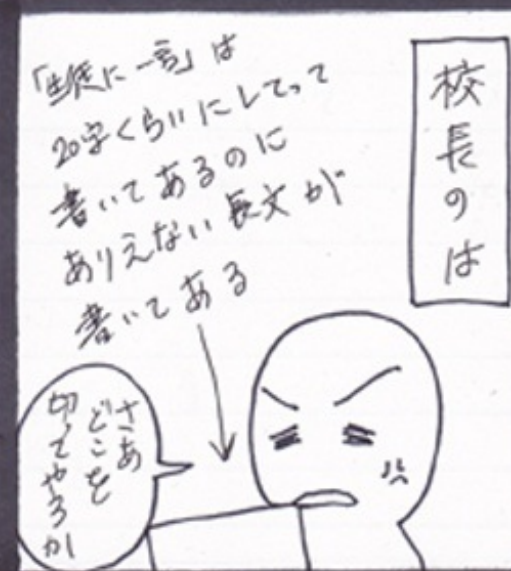 校長のは
「生徒に一言」は
20字くらいにしてって
書いてあるのに
ありえない長文が
書いてある
さあ
どこを
切ってやろうか